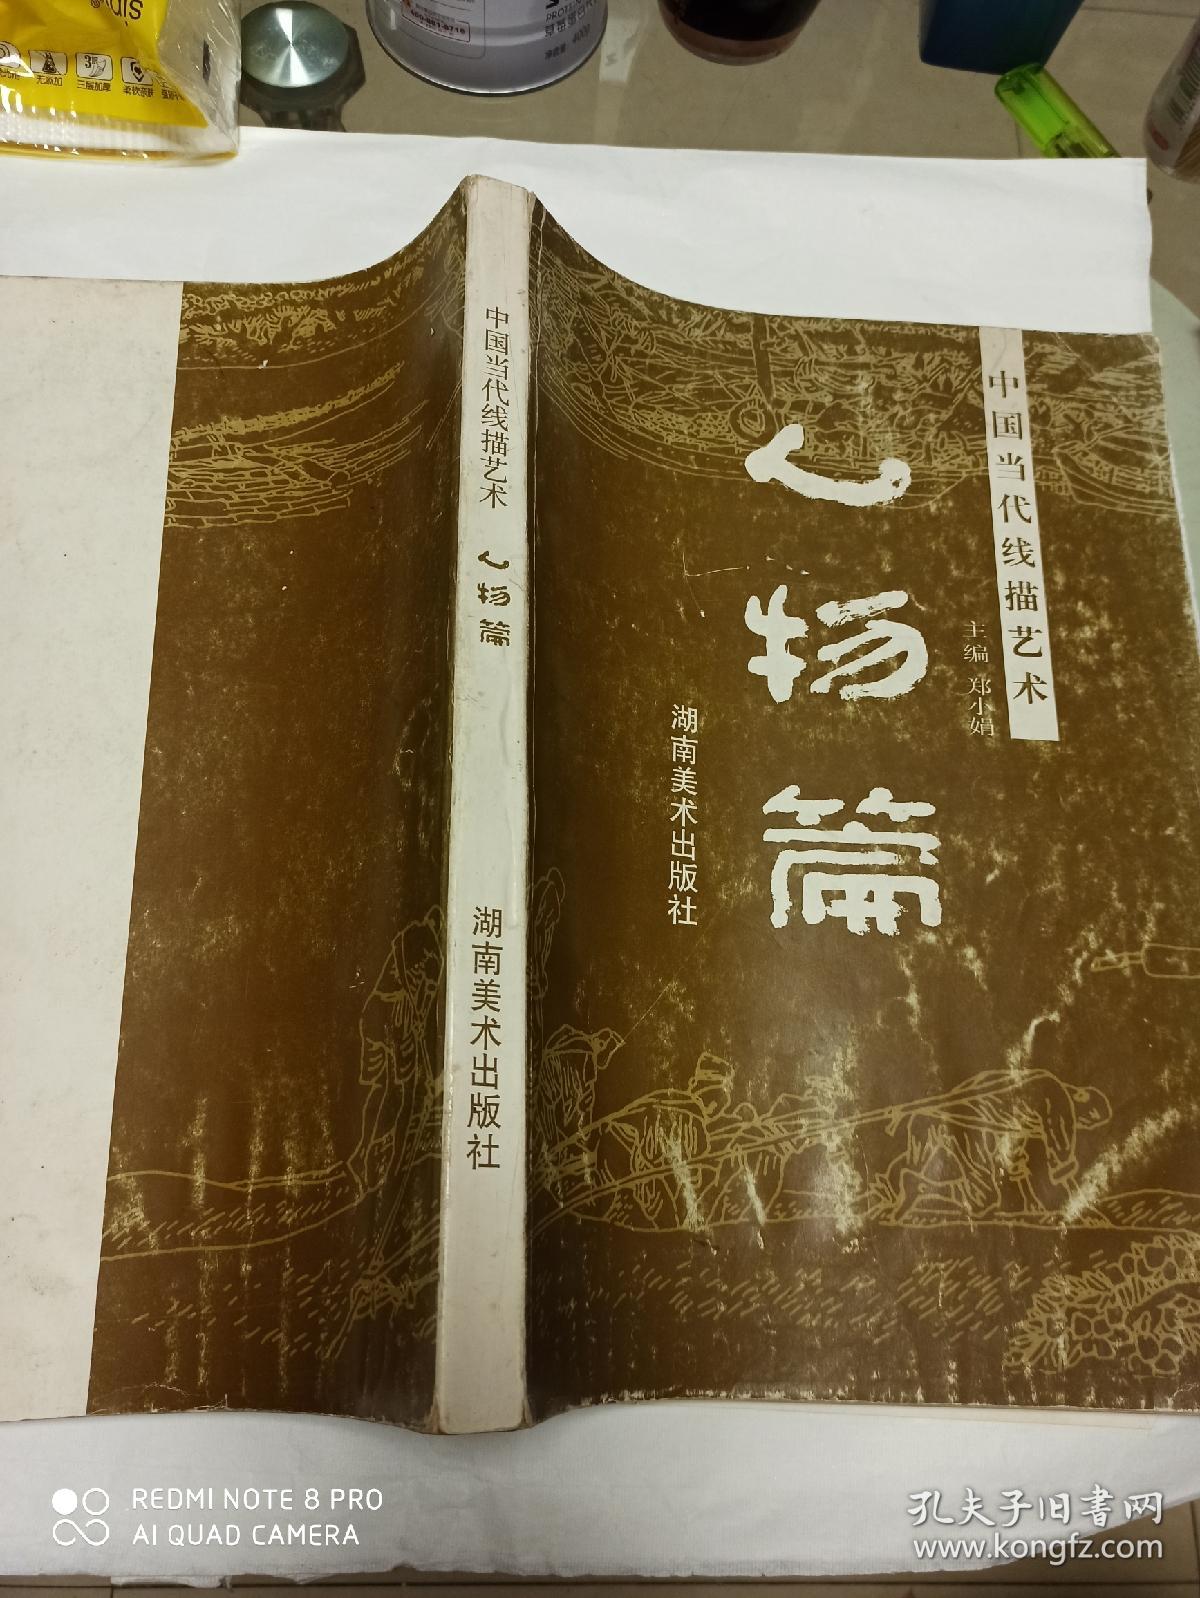 无添加
三层加厚
柔软亲肤
400-881-8718
中国当代线描艺术
人物篇
湖南美术出版社
中国当代线描艺术
主编 郑小娟
人物篇
湖南美术出版社
REDMI NOTE 8 PRO
AI QUAD CAMERA
孔夫子旧书网
www.kongfz.com